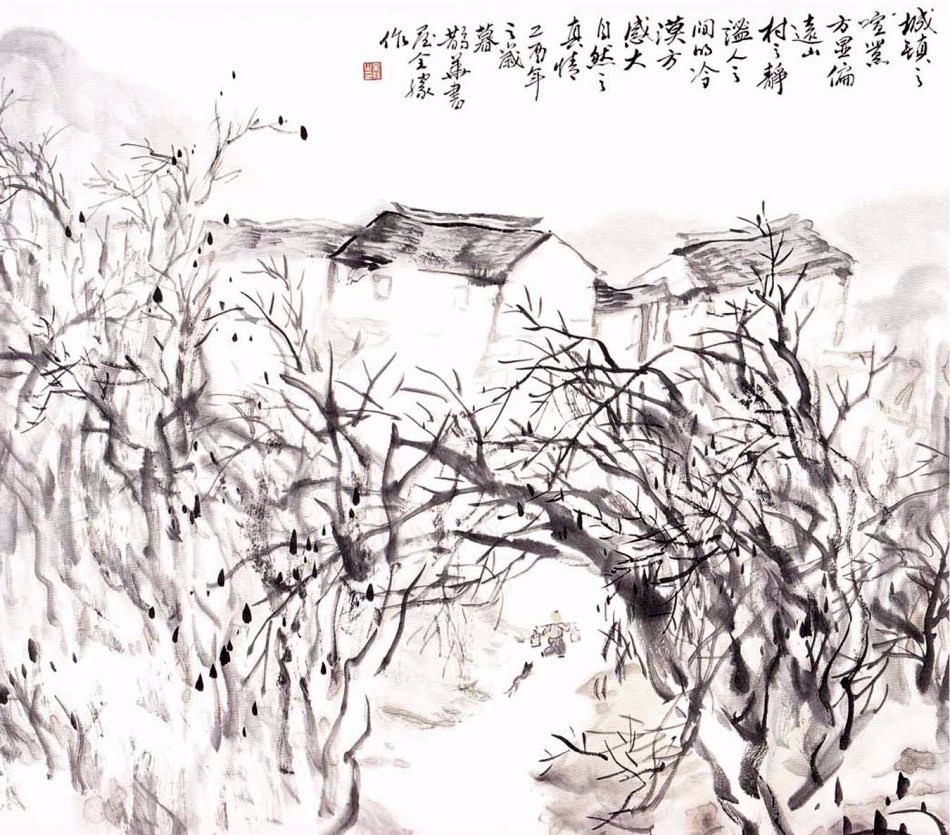 城镇之
喧嚣
方显偏
遠山
村之静
谧人之
间的冷
漠方
感大
自然之
真情
乙酉年
之歲
暮
鹊華書
屋全
作